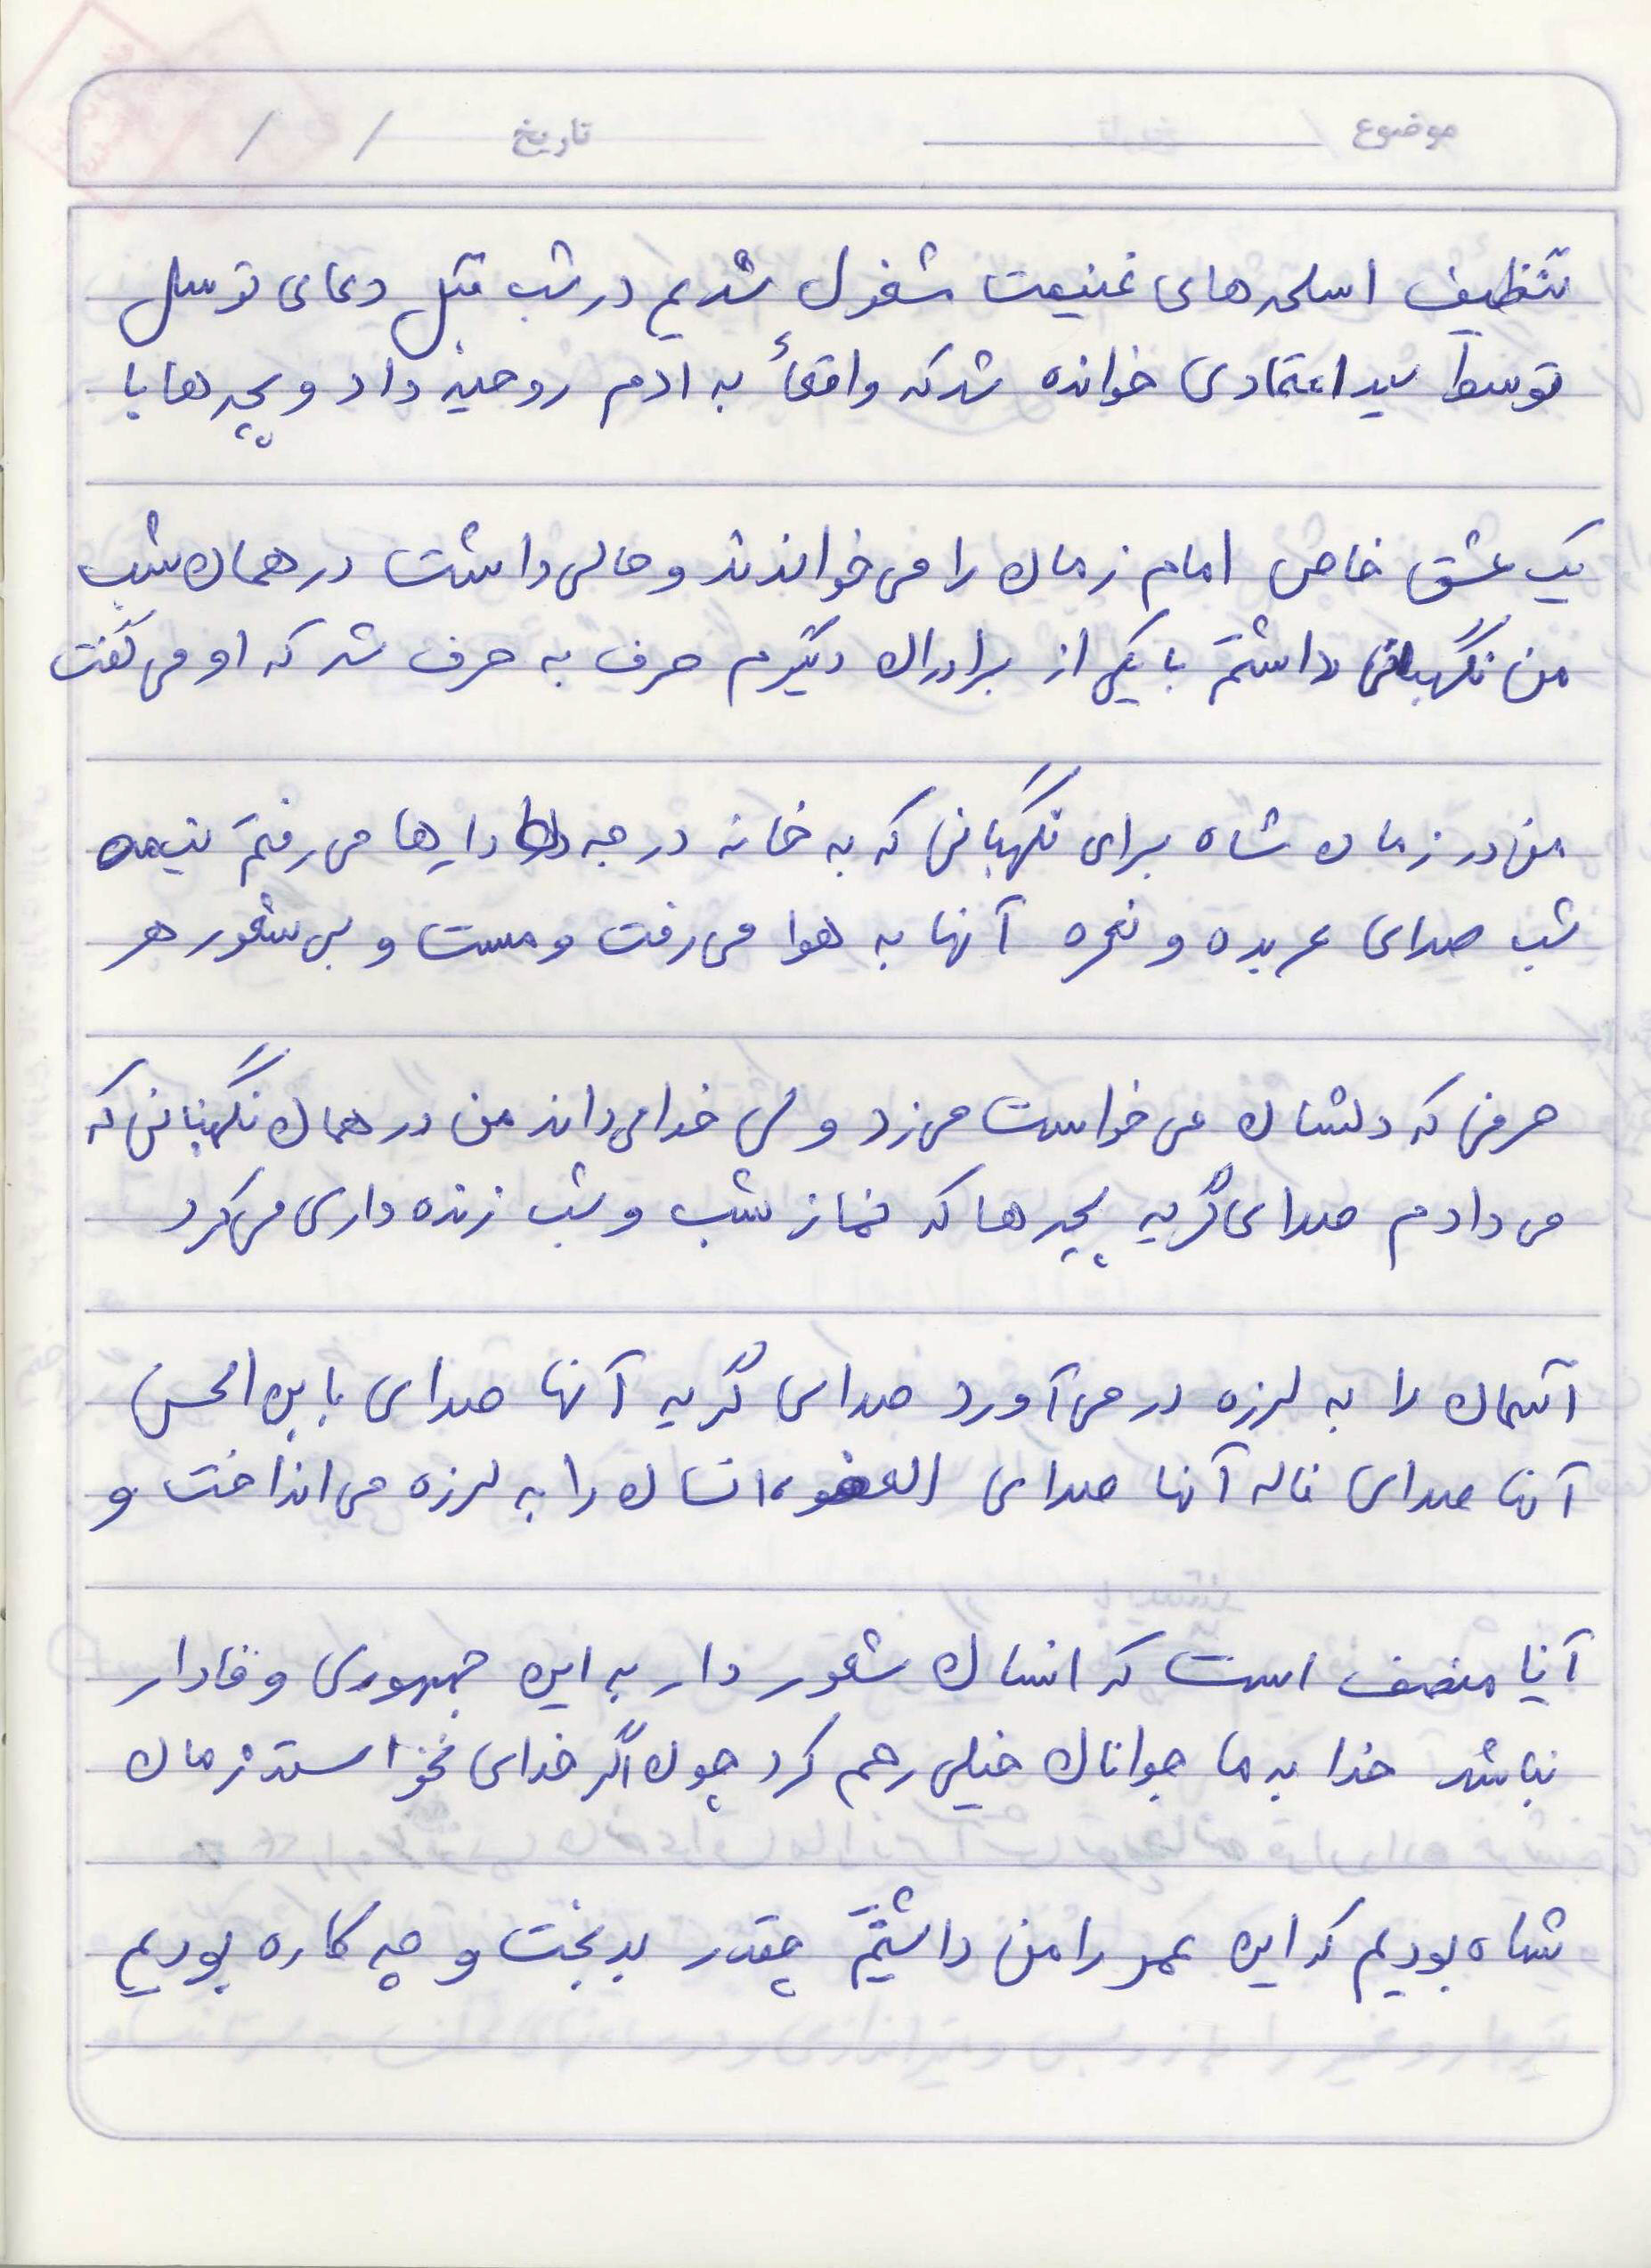 موضوع تاریخ / /
تنظیف اسلحه های غنیمت مشغول شدیم در شب قبل دعای توسل
توسط سید اعتمادی خوانده شد که واقعاً به ادم روحیه داد و بچه ها با
یک عشق خاص امام زمان را می خواندند و حالی داشت در همان شب
من نگهبانی داشتم با یکی از برادران دیگرم حرف به حرف شد که او می گفت
من در زمان شاه برای نگهبانی که به خانه درجه دارها می رفتم نیمه
شب صدای عربده و نعره آنها به هوا می رفت و مست و بی شعور هر
حرفی که دلشان می خواست می زد ولی خدا می داند من در همان نگهبانی که
می دادم صدای گریه بچه ها که نماز شب و شب زنده داری می کرد
آسمان را به لرزه در می آورد صدای گریه آنها صدای یابن الحسن
آنها صدای ناله آنها صدای العفو، انسان را به لرزه می انداخت و
آیا منصف است که انسان شعور دار به این جمهوری وفادار
نباشد خدا به ما جوانان خیلی رحم کرد چون اگر خدای نخواسته زمان
شاه بودیم که این عمر را من داشتیم چقدر بدبخت و چه کاره بودیم